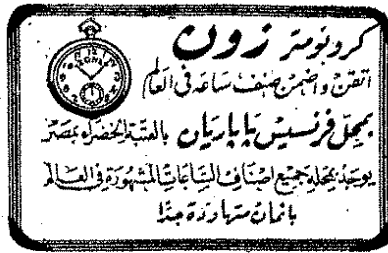 كرونومتر زون
اتقن واضمن صنف ساعه فى العالم
بمحل فرنسيس پاپازيان بالعتبة الخضراء بمصر
يوجد بمحله جميع اصناف الساعات المشهورة فى العالم
باثمان متهاودة جدا